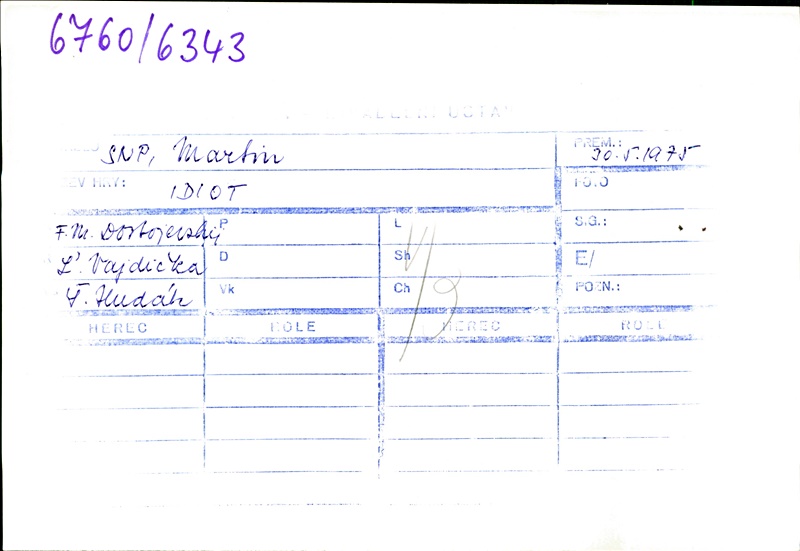 6760/6343
SNP, Martin PREM.: 30.5.1975
EV HRY: IDIOT
F.M. Dostojevský P L S.G.:
Ľ. Vajdička D Sh E/
F. Hudák Vk Ch POZN.:
1/3
HEREC ROLE HEREC ROLE